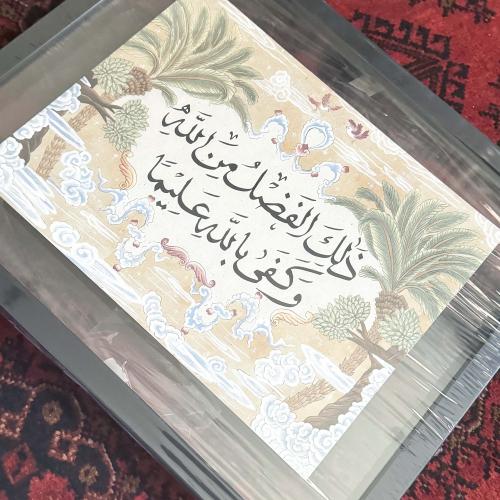 ذَٰلِكَ الْفَضْلُ مِنَ اللَّهِ
وَكَفَىٰ بِاللَّهِ عَلِيمًا